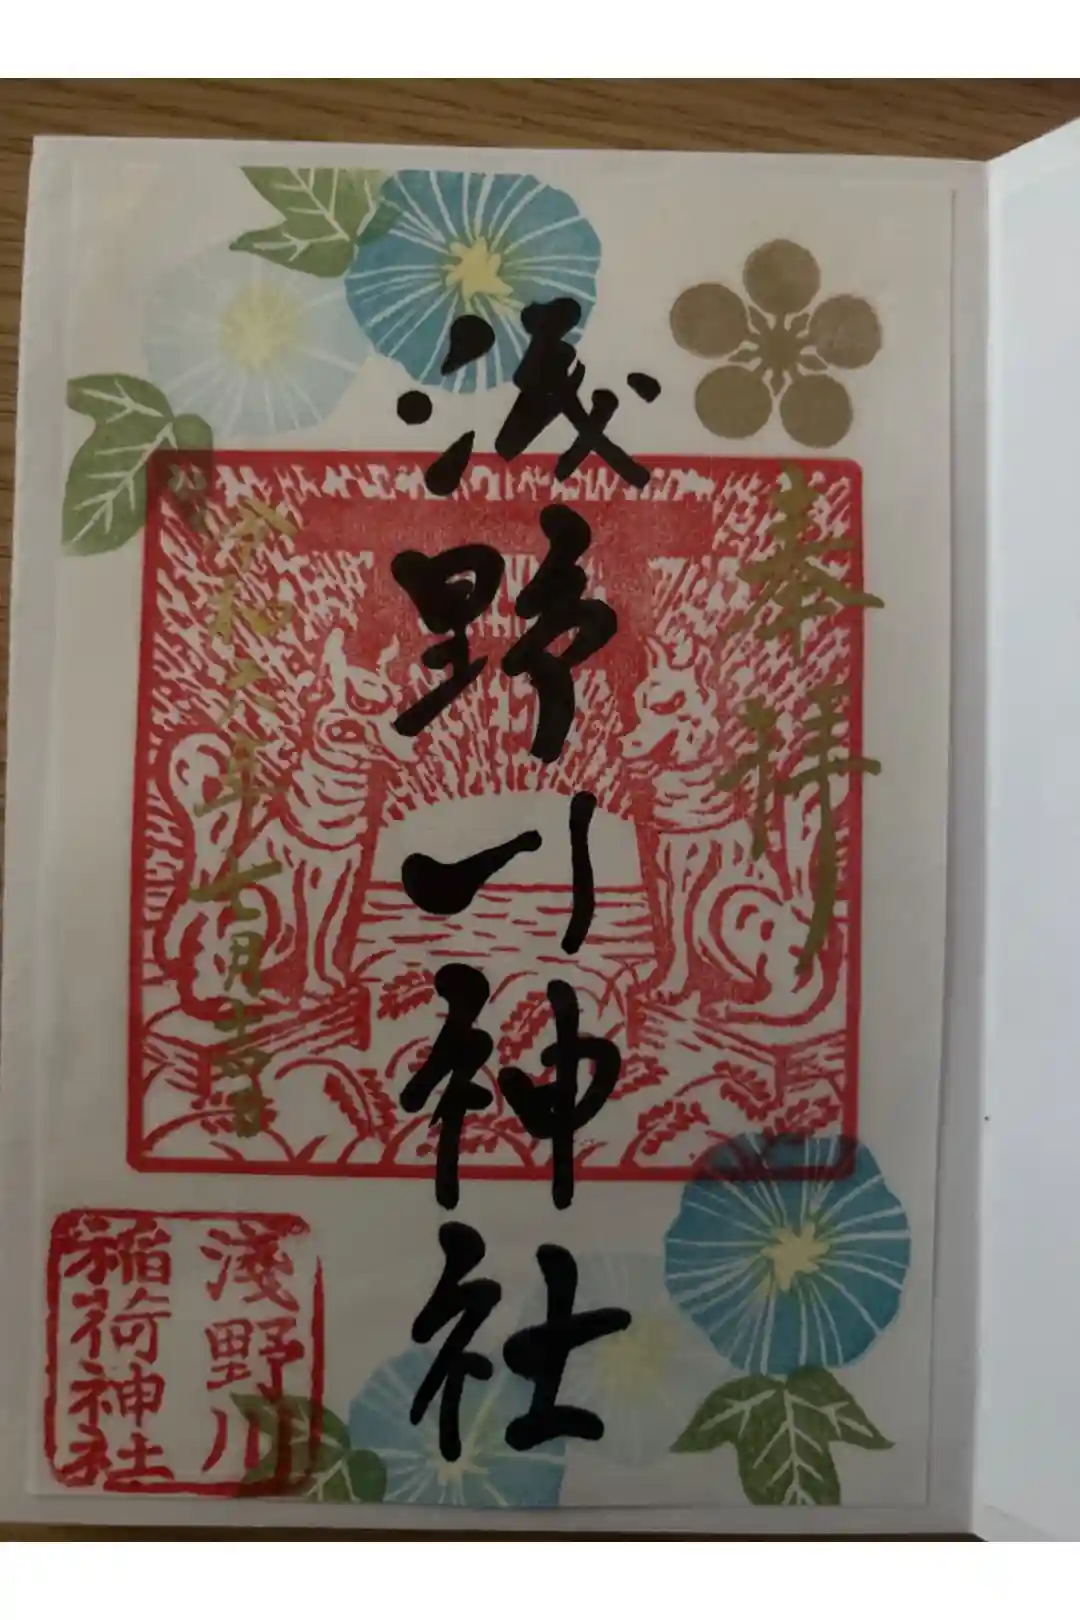 奉拝
浅野川神社
令和六年七月
淺野川
稲荷神社